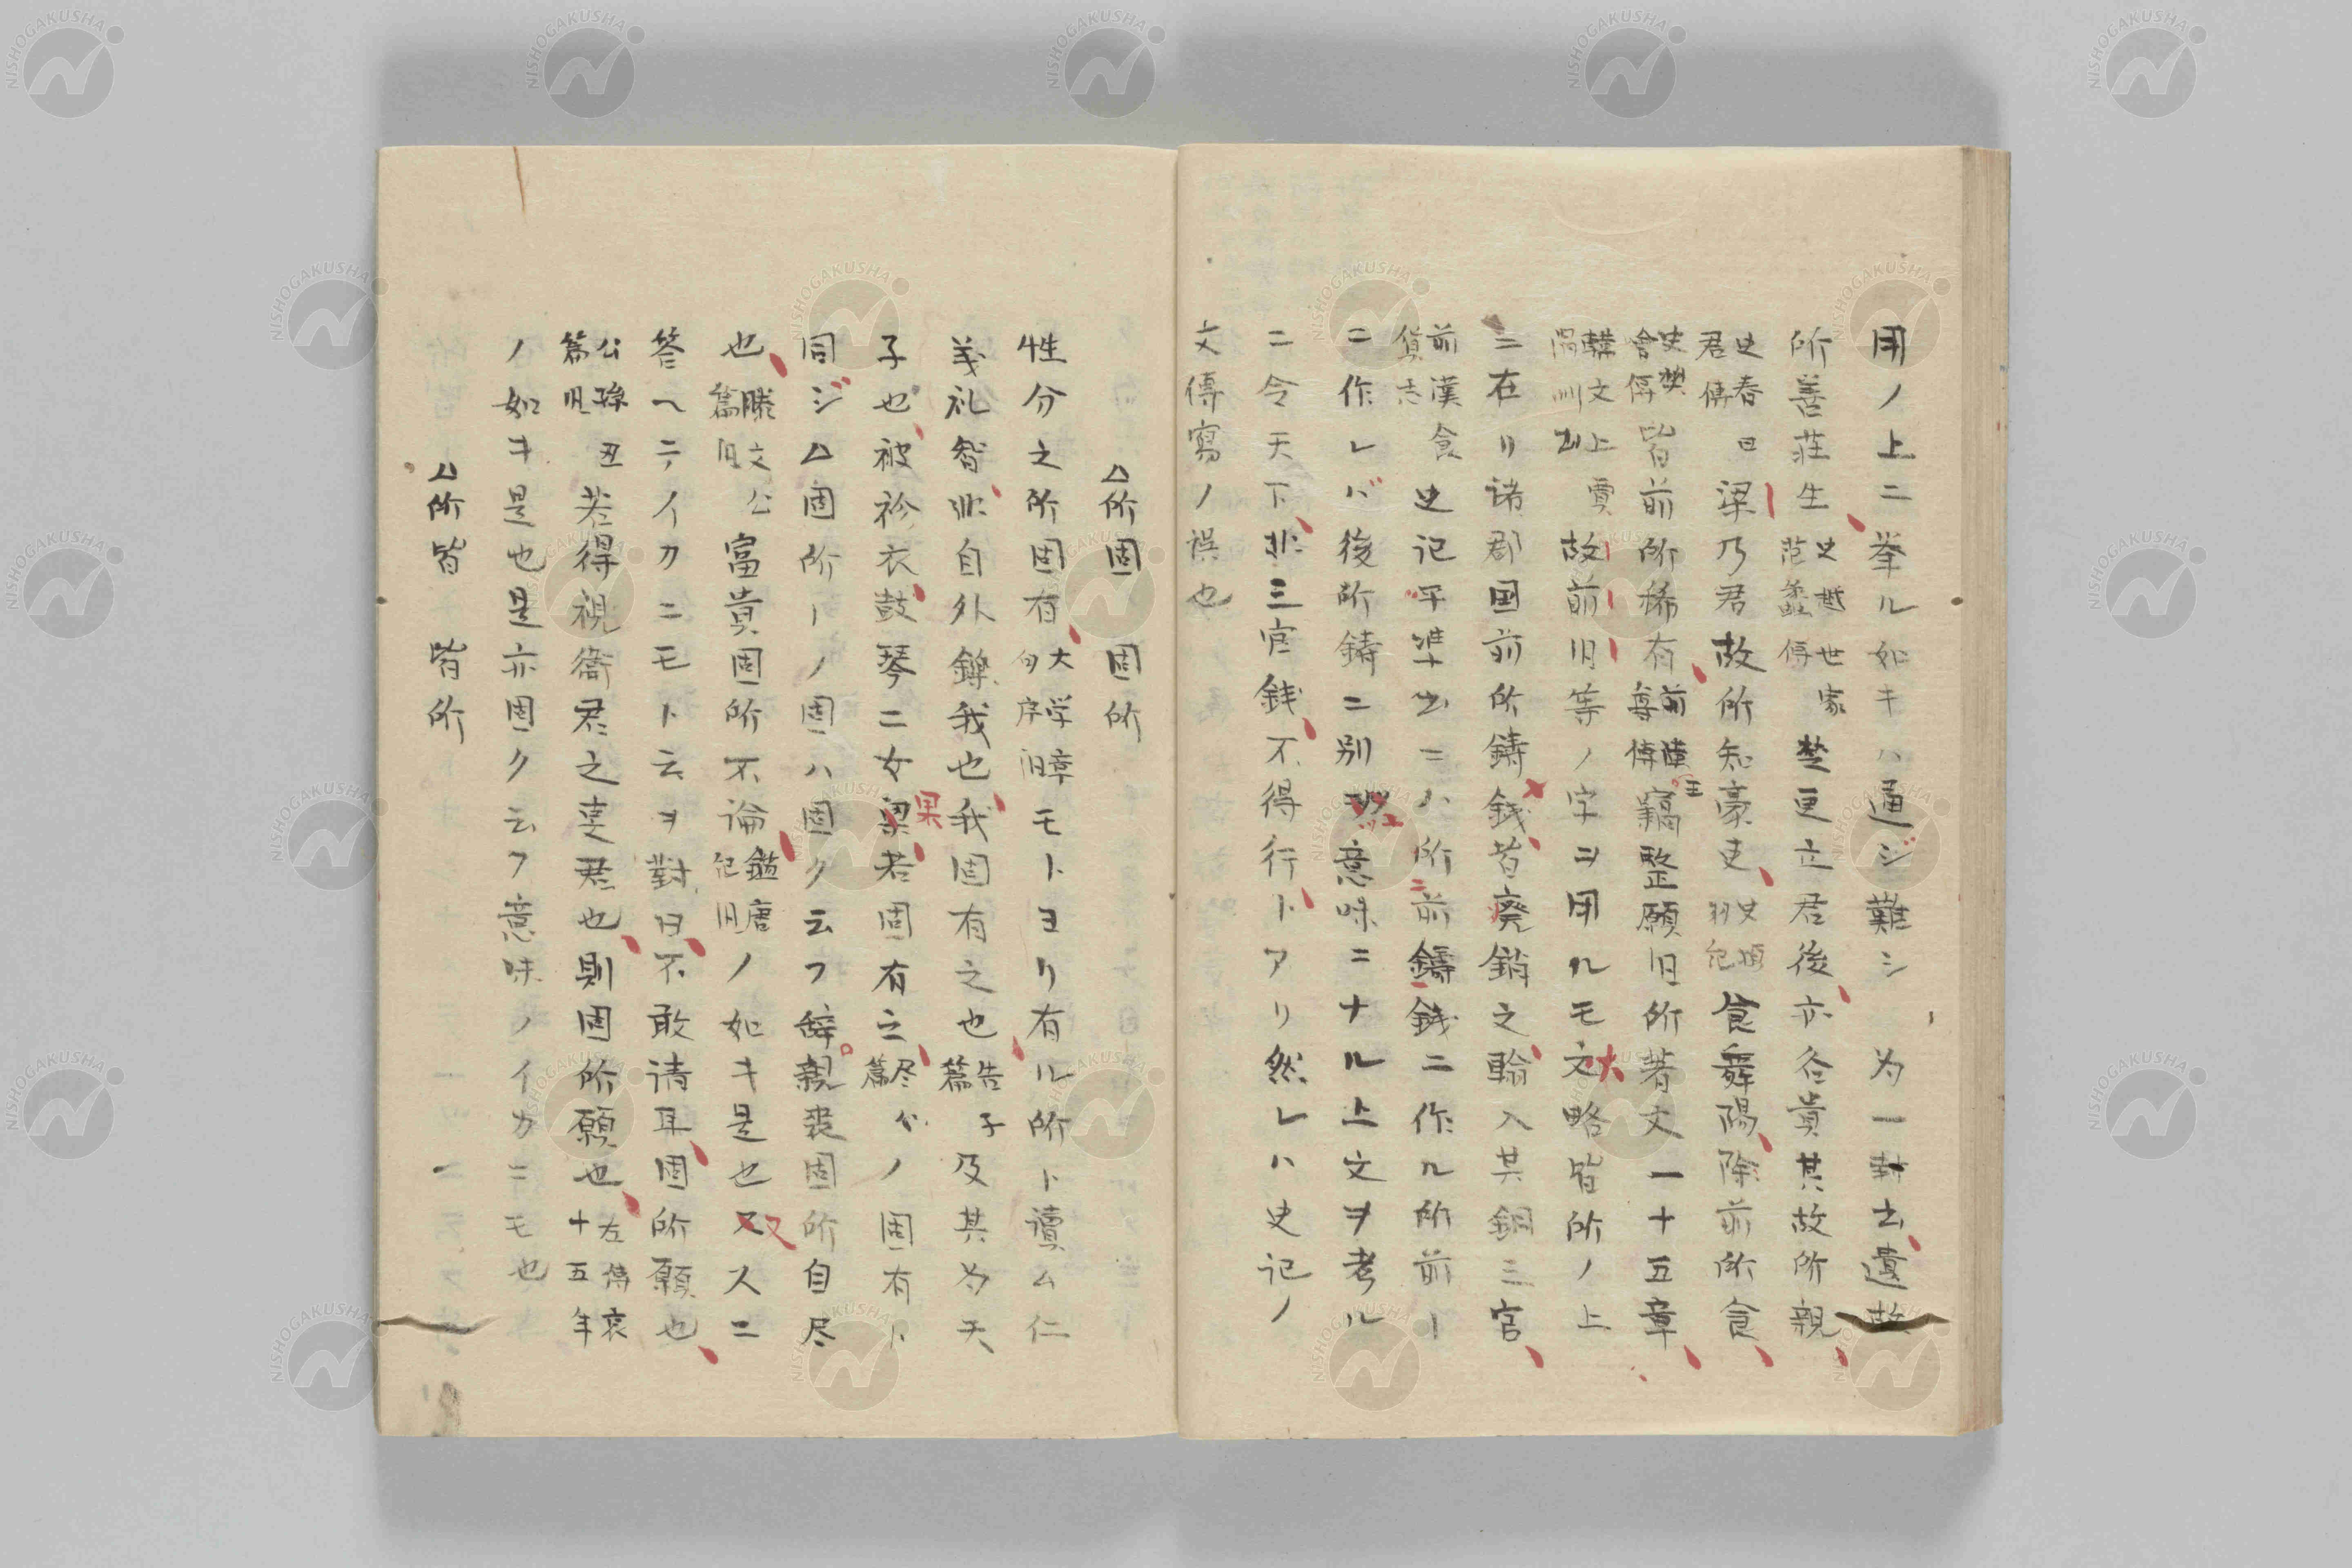 用ノ上ニ挙ル如キハ通ジ難シ 為一封去遺故
所善荘生史越世家范蠡傳楚更立君後亦合貴其故所親
史春君傳曰梁乃君故所知豪吏史項羽紀食舞陽除前所食
史樊會傳皆前所稀有前漢王尊傳竊整願旧所著文一十五章
韓文上賈滑州書故前旧等ノ字ヲ用ルモ大略皆所ノ上
ニ在リ諸郡国前所鋳銭皆廃銷之輸入其銅三官
前漢食貨志史記平準書ニハ所前鋳銭ニ作ル所前ー
ニ作レバ後所鋳ニ別ニ意味ニナル上文ヲ考ル
ニ令天下非三官銭不得行トアリ然レハ史記ノ
文傳寫ノ誤也
△所固 固所
性分之所固有大学章句序旧モトヨリ有ル所ト讀ム仁
義礼智非自外鑠我也我固有之也告子篇及其為天
子也被袗衣鼓琴二女果若固有之尽篇ノ固有ト
同ジ△固所ーノ固ハ固ク云フ辞親喪固所自尽
也滕文公篇旧富貴固所不論鑑唐紀旧ノ如キ是也又スニ
答ヘテイカニモト云ヲ對曰不敢請耳固所願也
公孫丑篇旧若得視衛君之事君也則固所願也左傳哀十五年
ノ如キ是也是亦固ク云フ意味ノイカニモ也
△所皆 皆所